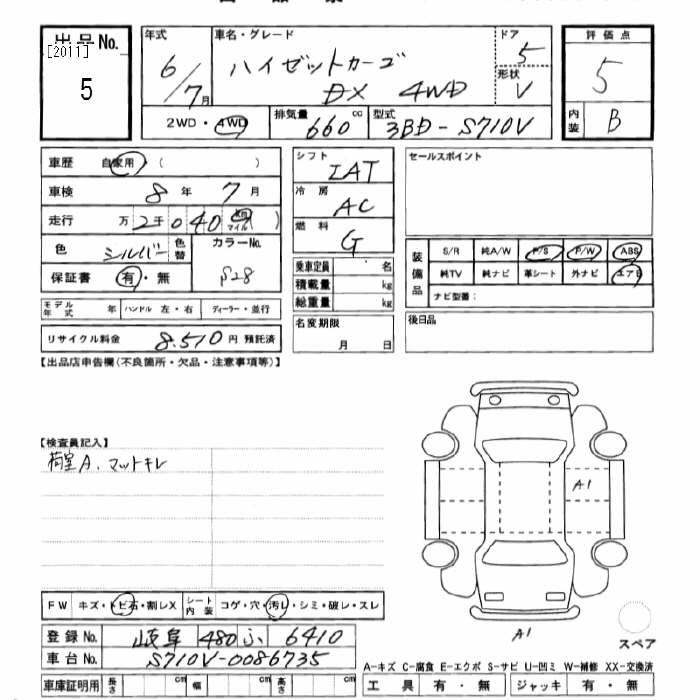 出品No.
[2011]
5
年式
6/7月
車名・グレード
ハイゼットカーゴ
DX 4WD
ドア
5
形状
V
2WD・4WD
排気量
660 cc
型式
3BD-S710V
評価点
5
内装
B
車歴 自家用 ( )
車検 8年 7月
走行 万 2千 0 40 km マイル ( )
色 シルバー 色替
カラーNo.
S28
保証書 有・無
モデル年式 年 ハンドル 左・右 ディーラー・並行
リサイクル料金 8.510円 預託済
シフト
IAT
冷房
AC
燃料
G
乗車定員 名
積載量 kg
総重量 kg
名変期限
月 日
セールスポイント
装備品
S/R 純A/W P/S P/W ABS
純TV 純ナビ 革シート 外ナビ エアB
ナビ型番:
後日品
【出品店申告欄(不良箇所・欠品・注意事項等)】
【検査員記入】
荷室A. マットキレ
A1
FW キズ・トビ石・割レX シート内装 コゲ・穴・汚レ・シミ・破レ・スレ
登録No. 岐阜 480 ふ 6410
車台No. S710V-0086735
車庫証明用 長さ cm 幅 cm 高さ cm
A1
スペア
A-キズ C-腐食 E-エクボ S-サビ U-凹ミ W-補修 XX-交換済
工具 有・無 ジャッキ 有・無